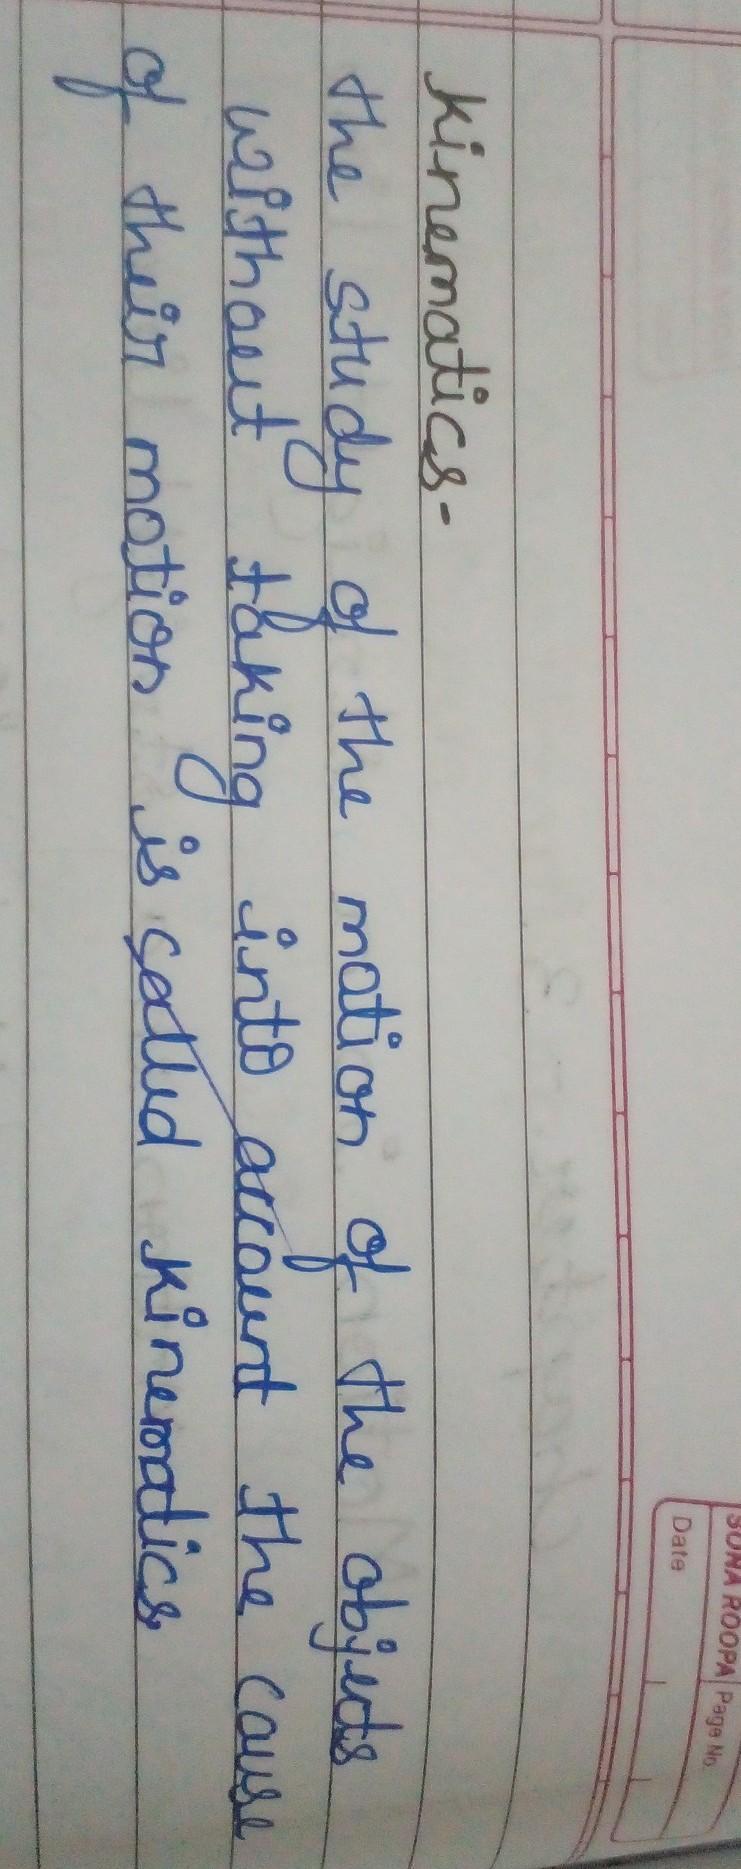 SONA ROOPA Page No.
Date
Kinematics-
the study of the motion of the objects
without taking into account the cause
of their motion is called kinematics